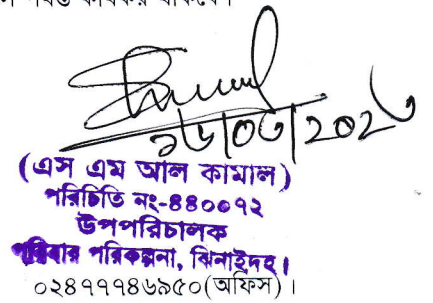 ১৬/০৩/২০২৬
(এস এম আল কামাল)
পরিচিতি নং-৪৪০০৭২
উপপরিচালক
পরিবার পরিকল্পনা, ঝিনাইদহ।
০২৪৭৭৭৪৬৯৫০(অফিস)।